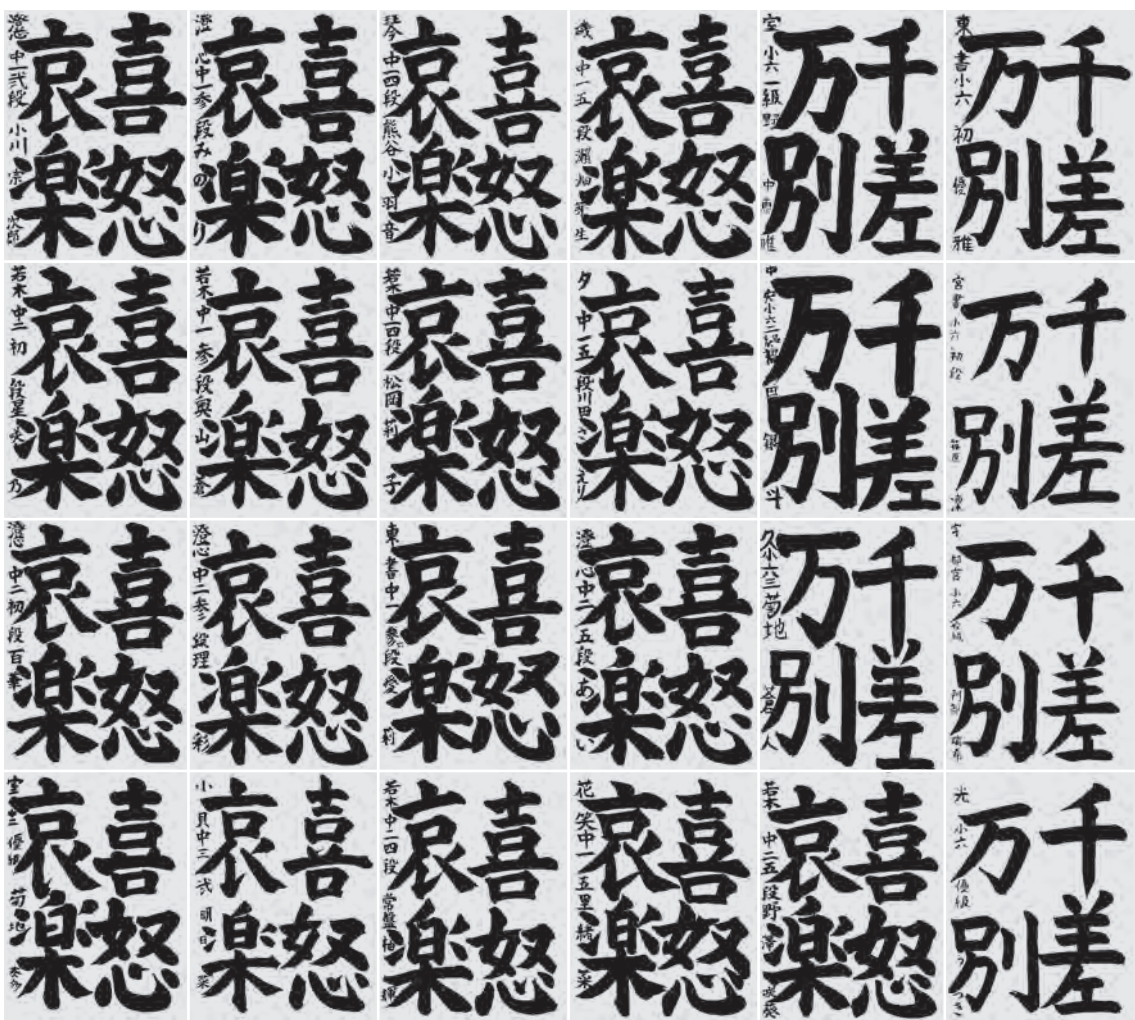 喜怒
哀楽
中一弐段 小川
喜怒
哀楽
澄心中一参段みのり
喜怒
哀楽
琴中一四段熊谷小羽音
喜怒
哀楽
中一五段瀬畑
千差
万別
室小六級野中
千差
万別
東書小六初優雅
喜怒
哀楽
若木中二初段星
喜怒
哀楽
若木中一参段奥山蒼
喜怒
哀楽
若木中一四段松岡莉子
喜怒
哀楽
夕中一五段川田さえり
千差
万別
小六二級 銀斗
千差
万別
宮書小六初段篠原
喜怒
哀楽
中二初段百華
喜怒
哀楽
澄心中二参段理彩
喜怒
哀楽
東書中一参段愛莉
喜怒
哀楽
澄心中二五段あい
千差
万別
久小六三菊地蒼人
千差
万別
宇都宮小六 阿部
喜怒
哀楽
優級菊地
喜怒
哀楽
小貝中三弐明日菜
喜怒
哀楽
若木中二四段常盤柚輝
喜怒
哀楽
花笑中一五里緒菜
喜怒
哀楽
若木中二五段野澤咲葵
千差
万別
光小六優級